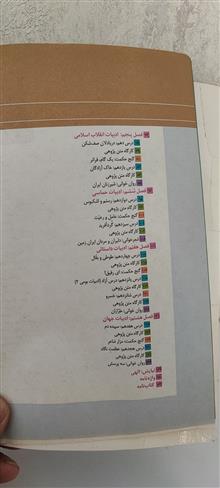 فصل پنجم: ادبیات انقلاب اسلامی
درس دهم: دریادلان صف‌شکن
کارگاه متن پژوهی
گنج حکمت: یک گام، فراتر
درس یازدهم: خاک آزادگان
کارگاه متن پژوهی
روان خوانی: شیرزنان ایران
فصل ششم: ادبیات حماسی
درس دوازدهم: رستم و اشکبوس
کارگاه متن پژوهی
گنج حکمت: عامل و رعیّت
درس سیزدهم: گردآفرید
کارگاه متن پژوهی
شعرخوانی: دلیران و مردان ایران زمین
فصل هفتم: ادبیات داستانی
درس چهاردهم: طوطی و بقّال
کارگاه متن پژوهی
گنج حکمت: ای رفیق!
درس پانزدهم: درس آزاد (ادبیات بومی ۲)
کارگاه متن پژوهی
درس شانزدهم: خسرو
کارگاه متن پژوهی
روان خوانی: طرّاران
فصل هشتم: ادبیات جهان
درس هفدهم: سپیده دم
کارگاه متن پژوهی
گنج حکمت: مزار شاعر
درس هجدهم: عظمت نگاه
کارگاه متن پژوهی
روان خوانی: سه پرسش
نیایش: الهی
واژه‌نامه
کتاب‌نامه